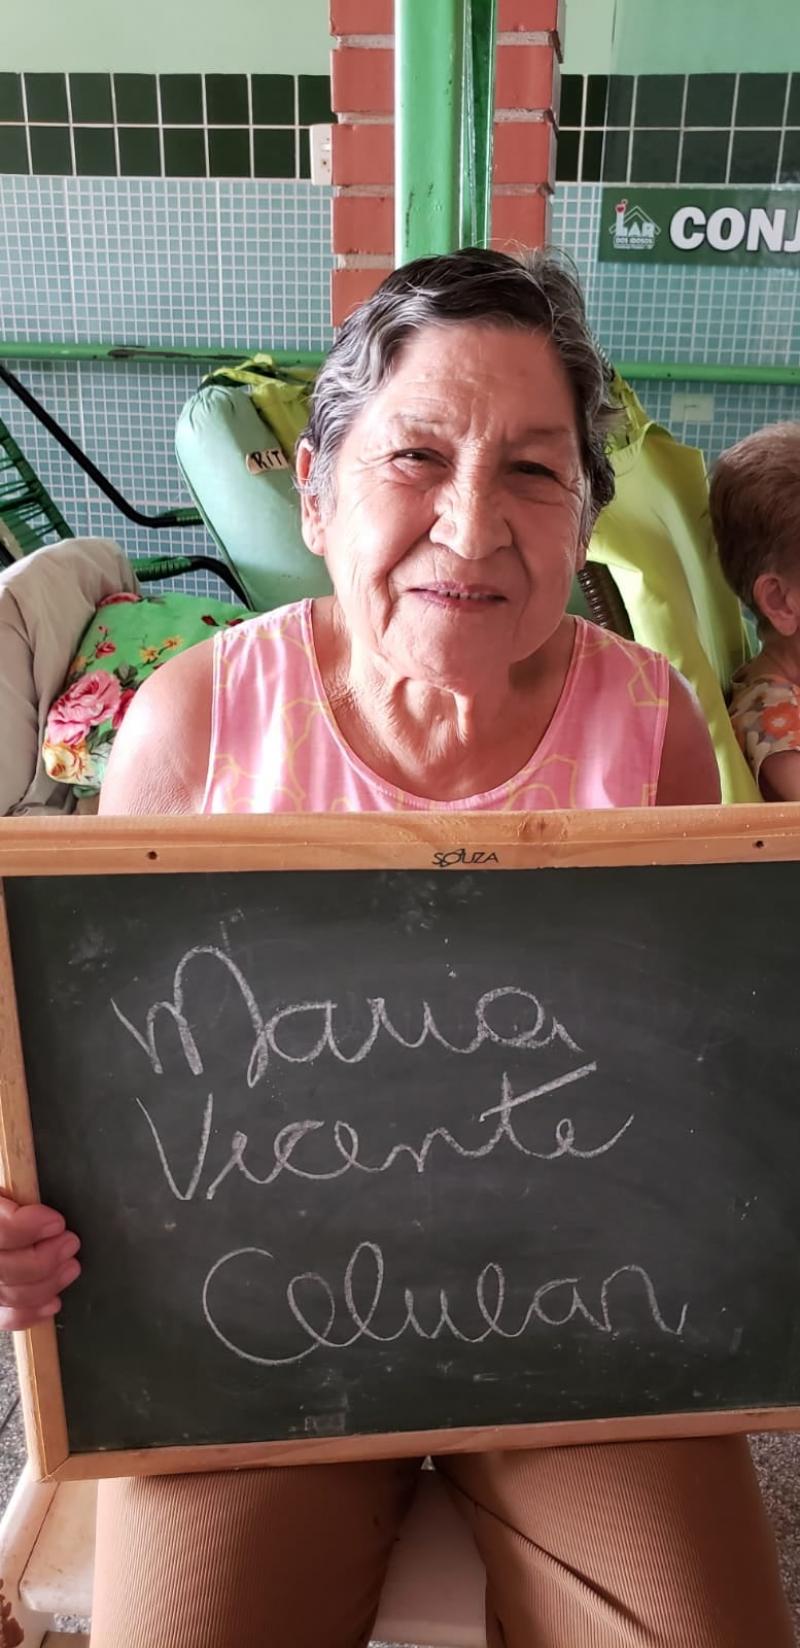 LAR
DOS IDOSOS
CONJ
RIT
SOUZA
Maria
Vicente
Celular